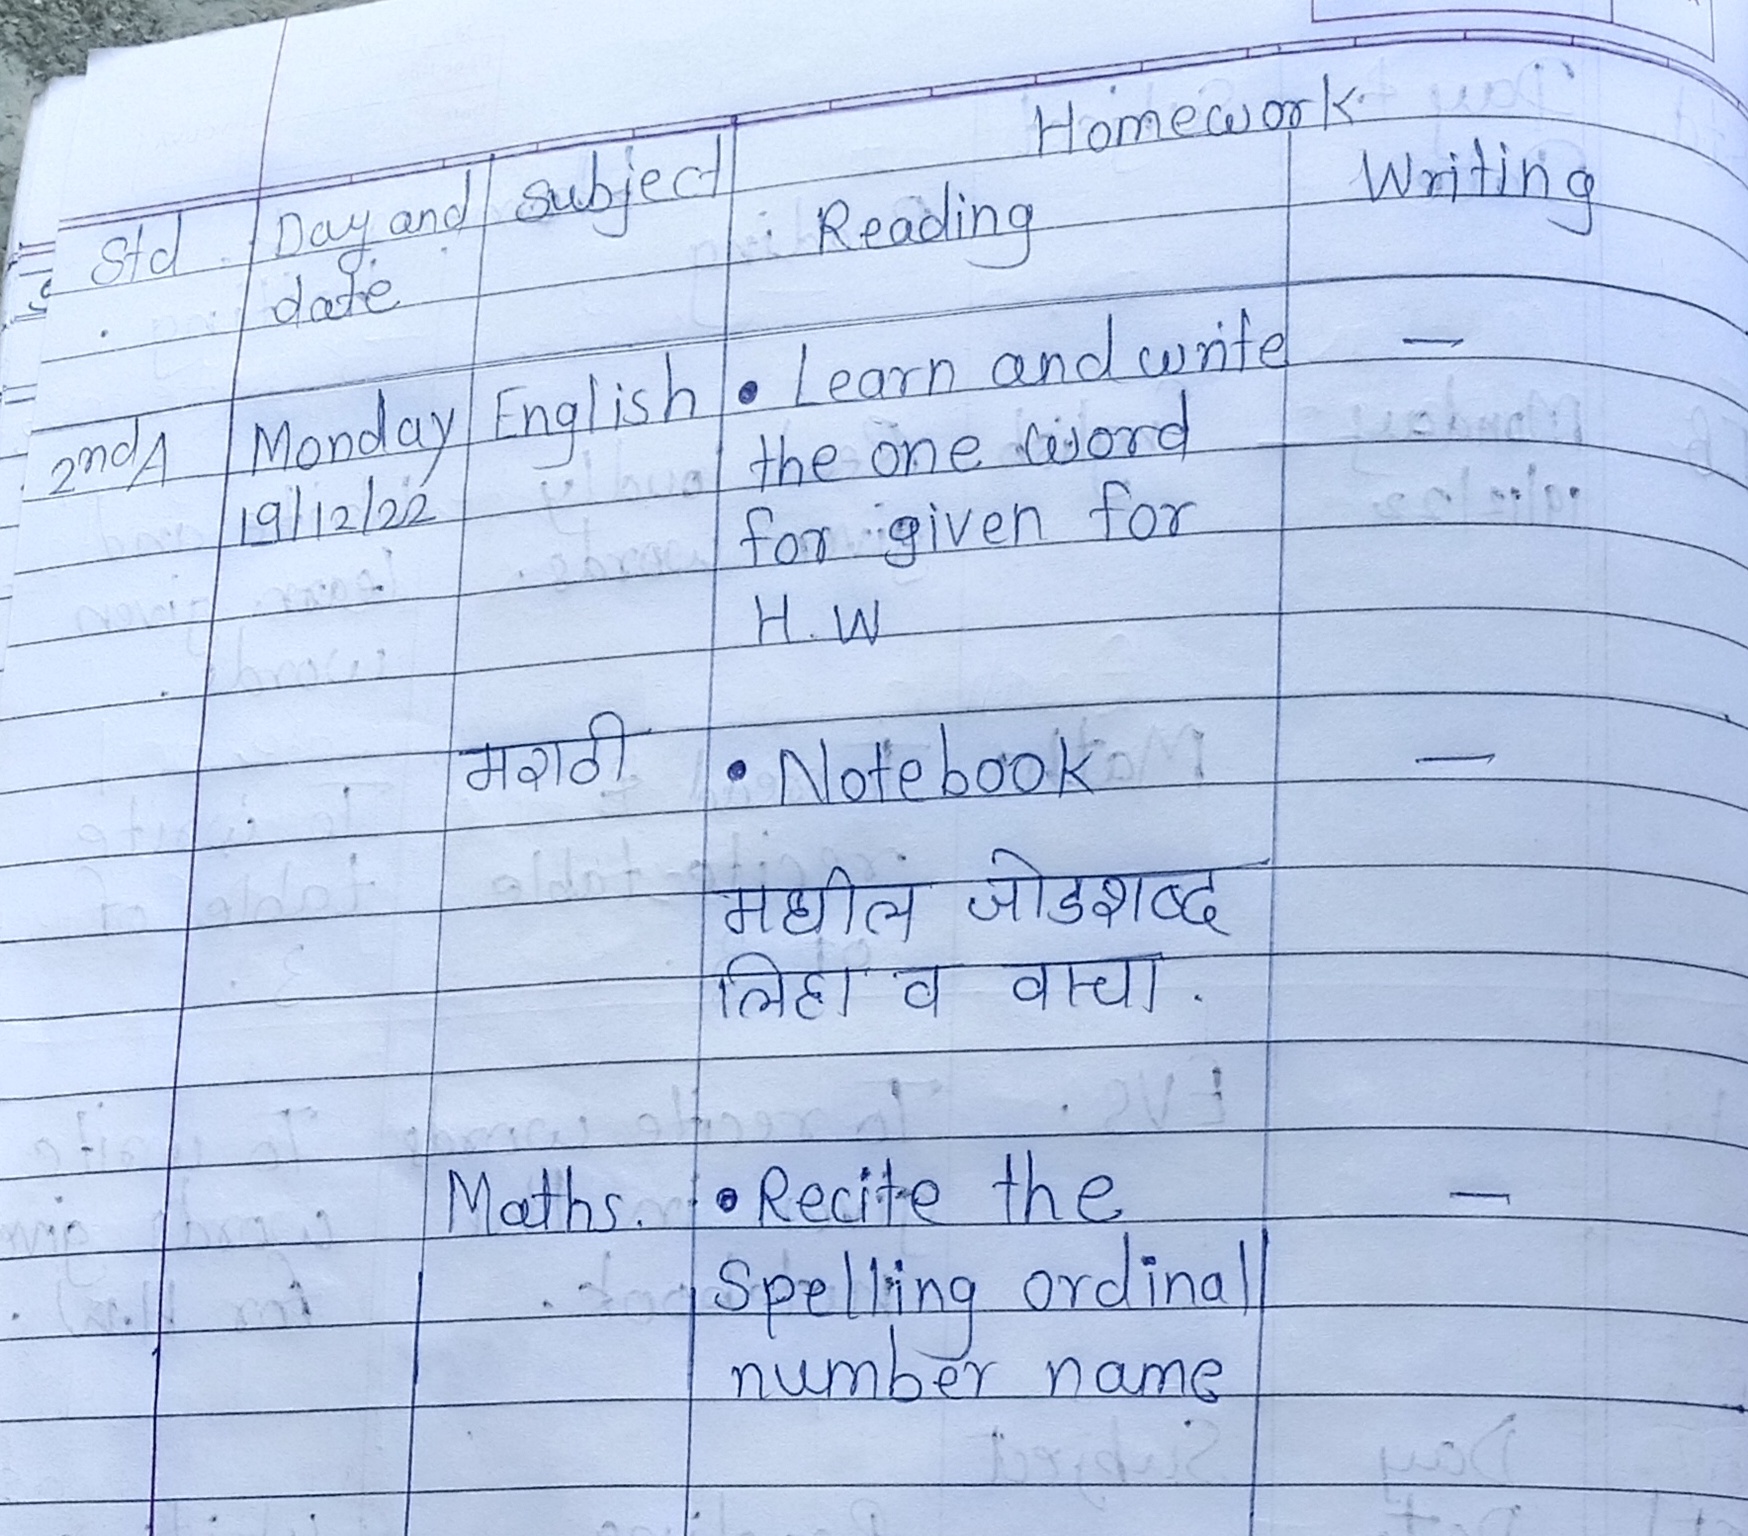 Homework
Std Day and date Subject Reading Writing
2nd A Monday English • Learn and write —
19/12/22 the one word
for given for
H.W
मराठी • Notebook —
मधील जोडशब्द
लिहा व वाचा.
Maths. • Recite the —
Spelling ordinal
number name